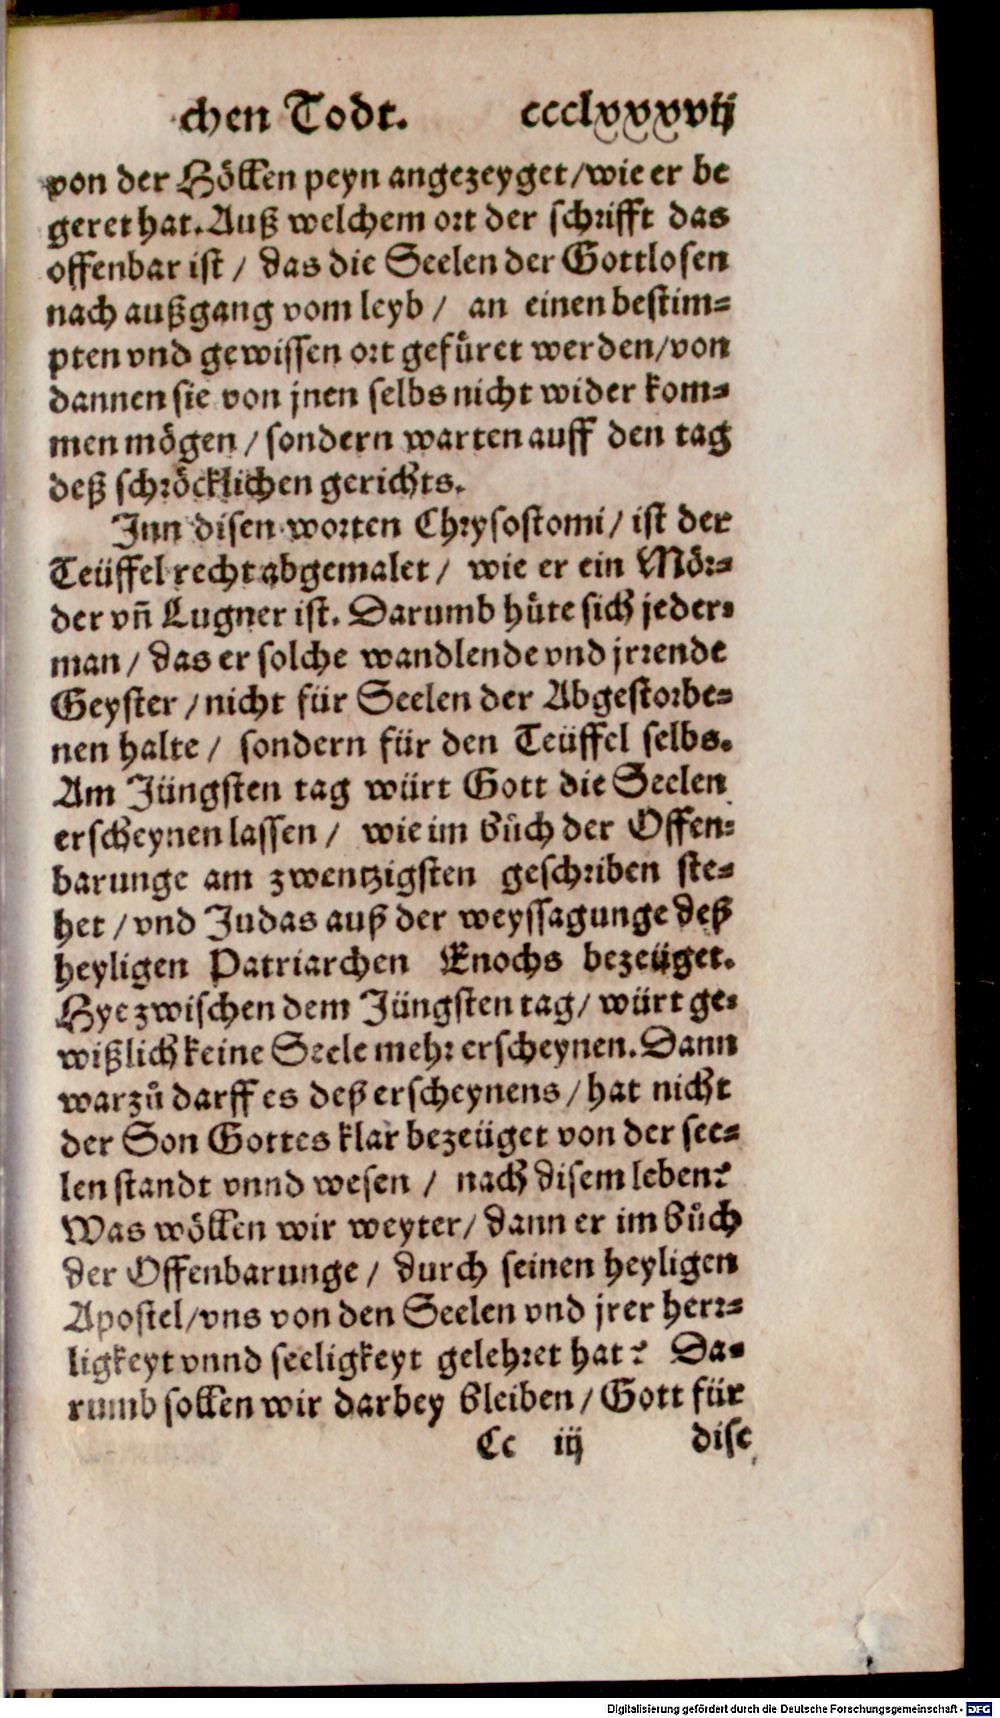 chen Todt. ccclxxxxvij
von der Höllen peyn angezeyget/wie er be
geret hat. Auß welchem ort der schrifft das
offenbar ist / das die Seelen der Gottlosen
nach außgang vom leyb / an einen bestim-
pten vnd gewissen ort gefüret werden/von
dannen sie von jnen selbs nicht wider kom-
men mögen / sondern warten auff den tag
deß schröcklichen gerichts.
Jnn disen worten Chrysostomi / ist der
Teüffel recht abgemalet / wie er ein Mör-
der vñ Lugner ist. Darumb hüte sich jeder-
man / das er solche wandlende vnd jrrende
Geyster / nicht für Seelen der Abgestorbe-
nen halte / sondern für den Teüffel selbs.
Am Jüngsten tag würt Gott die Seelen
erscheynen lassen / wie im Bůch der Offen-
barunge am zwentzigsten geschriben ste-
het / vnd Judas auß der weyssagunge deß
heyligen Patriarchen Enochs bezeüget.
Hye zwischen dem Jüngsten tag/ würt ge-
wißlich keine Seele mehr erscheynen. Dann
warzů darff es deß erscheynens / hat nicht
der Son Gottes klar bezeüget von der see-
len standt vnnd wesen / nach disem leben?
Was wöllen wir weyter/ dann er im Bůch
der Offenbarunge / durch seinen heyligen
Apostel/vns von den Seelen vnd jrer herr-
ligkeyt vnnd seeligkeyt gelehret hat? Da-
rumb sollen wir darbey bleiben / Gott für
Cc iij dise
Digitalisierung gefördert durch die Deutsche Forschungsgemeinschaft - DFG